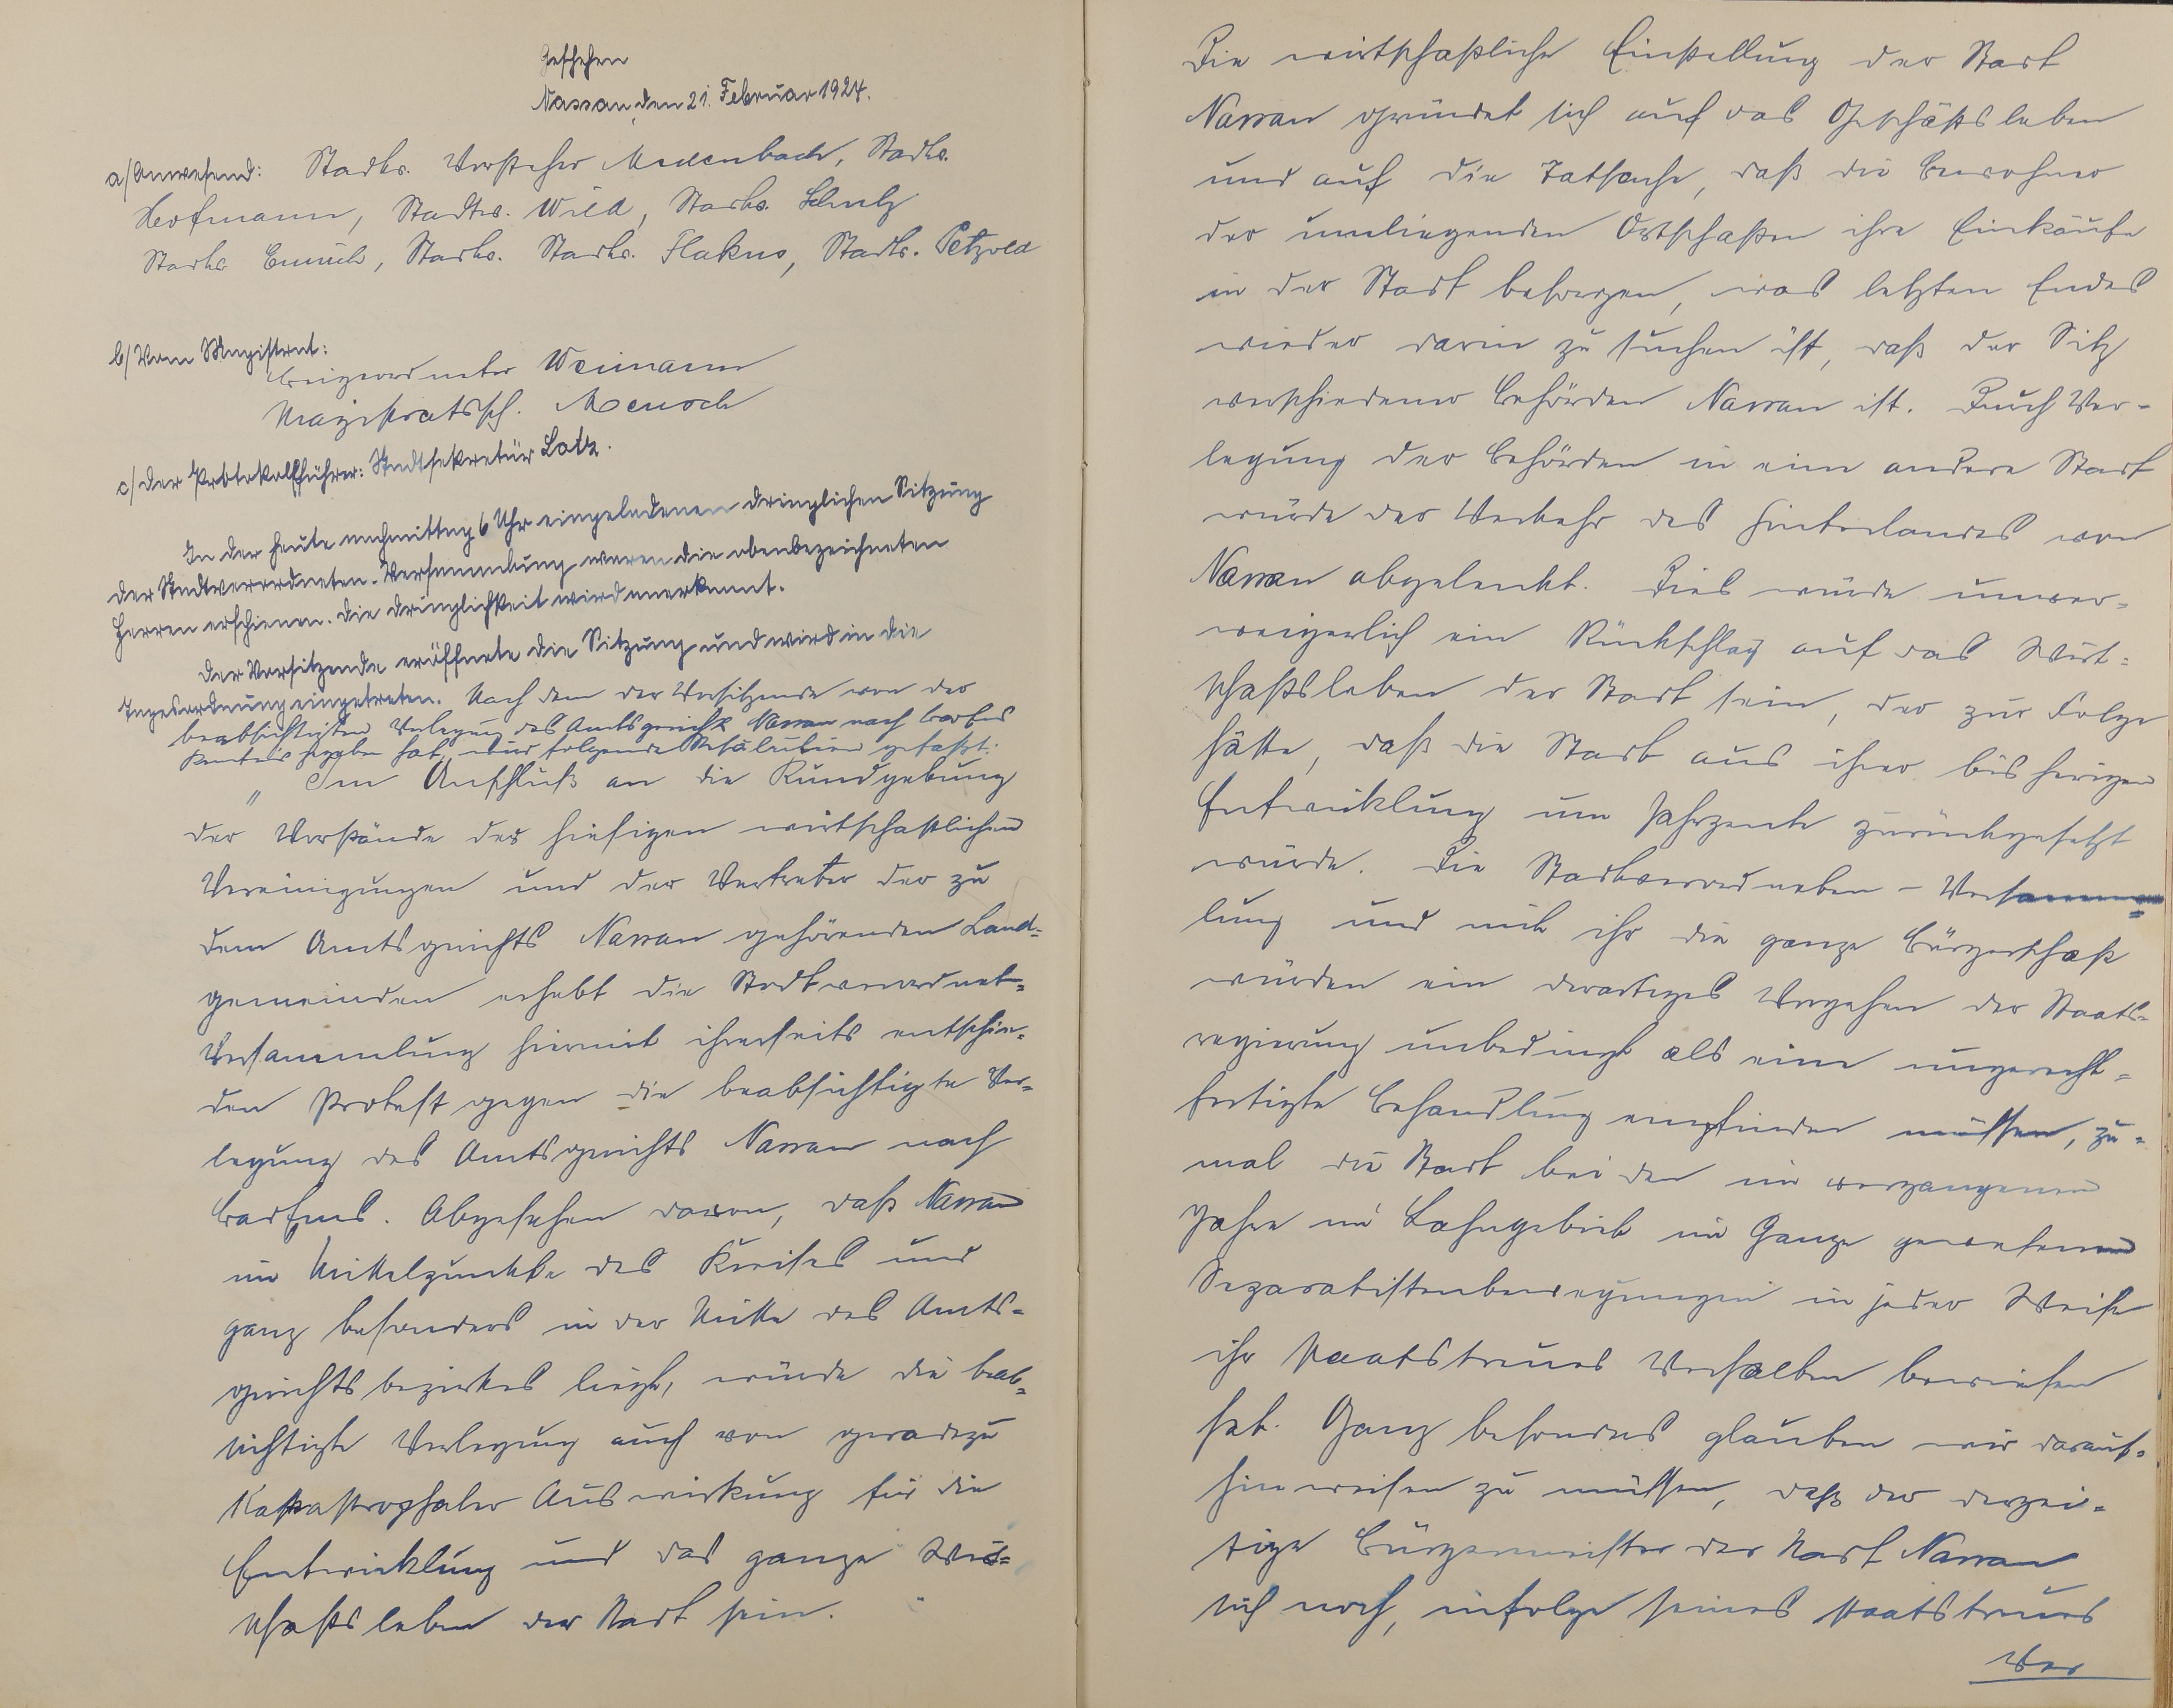 Geschehen
Nassau, den 21. Februar 1924.
a/ Anwesend: Stadtv. Vorsteher Medenbach, Stadtv.
Hofmann, Stadtv. Wild, Stadtv. Schulz
Stadtv. Stadtv. Stadtv. Stadtv. Petzold
b/ Vom Magistrat:
Beigeordneter Weimann
Magistratssch.
c/ Der Protokollführer: Stadtsekretär Lotz.
In der heute nachmittag 6 Uhr eingeladenen dringlichen Sitzung
der Stadtverordneten-Versammlung waren die obenbezeichneten
Herren erschienen. Die Dringlichkeit wird anerkannt.
Der Vorsitzende eröffnete die Sitzung und wird in die
Tagesordnung eingetreten. Nach dem der Vorsitzende von der
beabsichtigten Verlegung des Amtsgerichts Nassau nach
Kentnis gegeben hat, wird folgende Resolution gefaßt:
„Im Anschluß an die Kundgebung
der Vorstände der hiesigen wirtschaftlichen
Vereinigungen und der Vertreter der zu
dem Amtsgerichts Nassau gehörenden Land-
gemeinden erhebt die Stadtverordnet-
Versammlung hiermit ihrerseits entschie-
den Protest gegen die beabsichtigte Ver-
legung des Amtsgerichts Nassau nach
Abgesehen davon, daß Nassau
im Mittelpunkte des Kreises und
ganz besonders in der Mitte des Amts-
gerichtsbezirkes liegt, würde die beab-
sichtigte Verlegung auch von geradezu
Katastrophaler Auswirkung für die
Entwicklung und das ganze Wirt-
schaftsleben der Stadt sein.
Die wirtschaftliche Einstellung der Stadt
Nassau gründet sich auf das Geschäftsleben
und auf die Tatsache, daß die Bewohner
der umliegenden Ortschaften ihre Einkäufe
in der Stadt besorgen, was letzten Endes
wieder darin zu suchen ist, daß der Sitz
verschiedener Behörden Nassau ist. Durch Ver-
legung der Behörden in eine andere Stadt
würde der Verkehr des Hinterlandes von
Nassau abgelenkt. Dies würde unver-
weigerlich ein Rückschlag auf das Wirt-
schaftsleben der Stadt sein, der zur Folge
hätte, daß die Stadt aus ihrer bisherigen
Entwicklung um Jahrzente zurückgesetzt
würde. Die Stadtverordneten-Versamm-
lung und mit ihr die ganze Bürgerschaft
würden ein derartiges Vorgehen der Staats-
regierung unbedingt als eine ungerecht-
fertigte Behandlung empfinden müssen, zu-
mal die Stadt bei den im vergangenen
Jahre im Lahngebiet im Gange gewesenen
Separatistenbewegungen in jeder Weise
ihr staatstreues Verhalten bewiesen
hat. Ganz besonders glauben wir darauf-
hinweisen zu müssen, daß der derzei-
tige Bürgermeister der Stadt Nassau
sich noch, infolge seines staatstreues
Ver